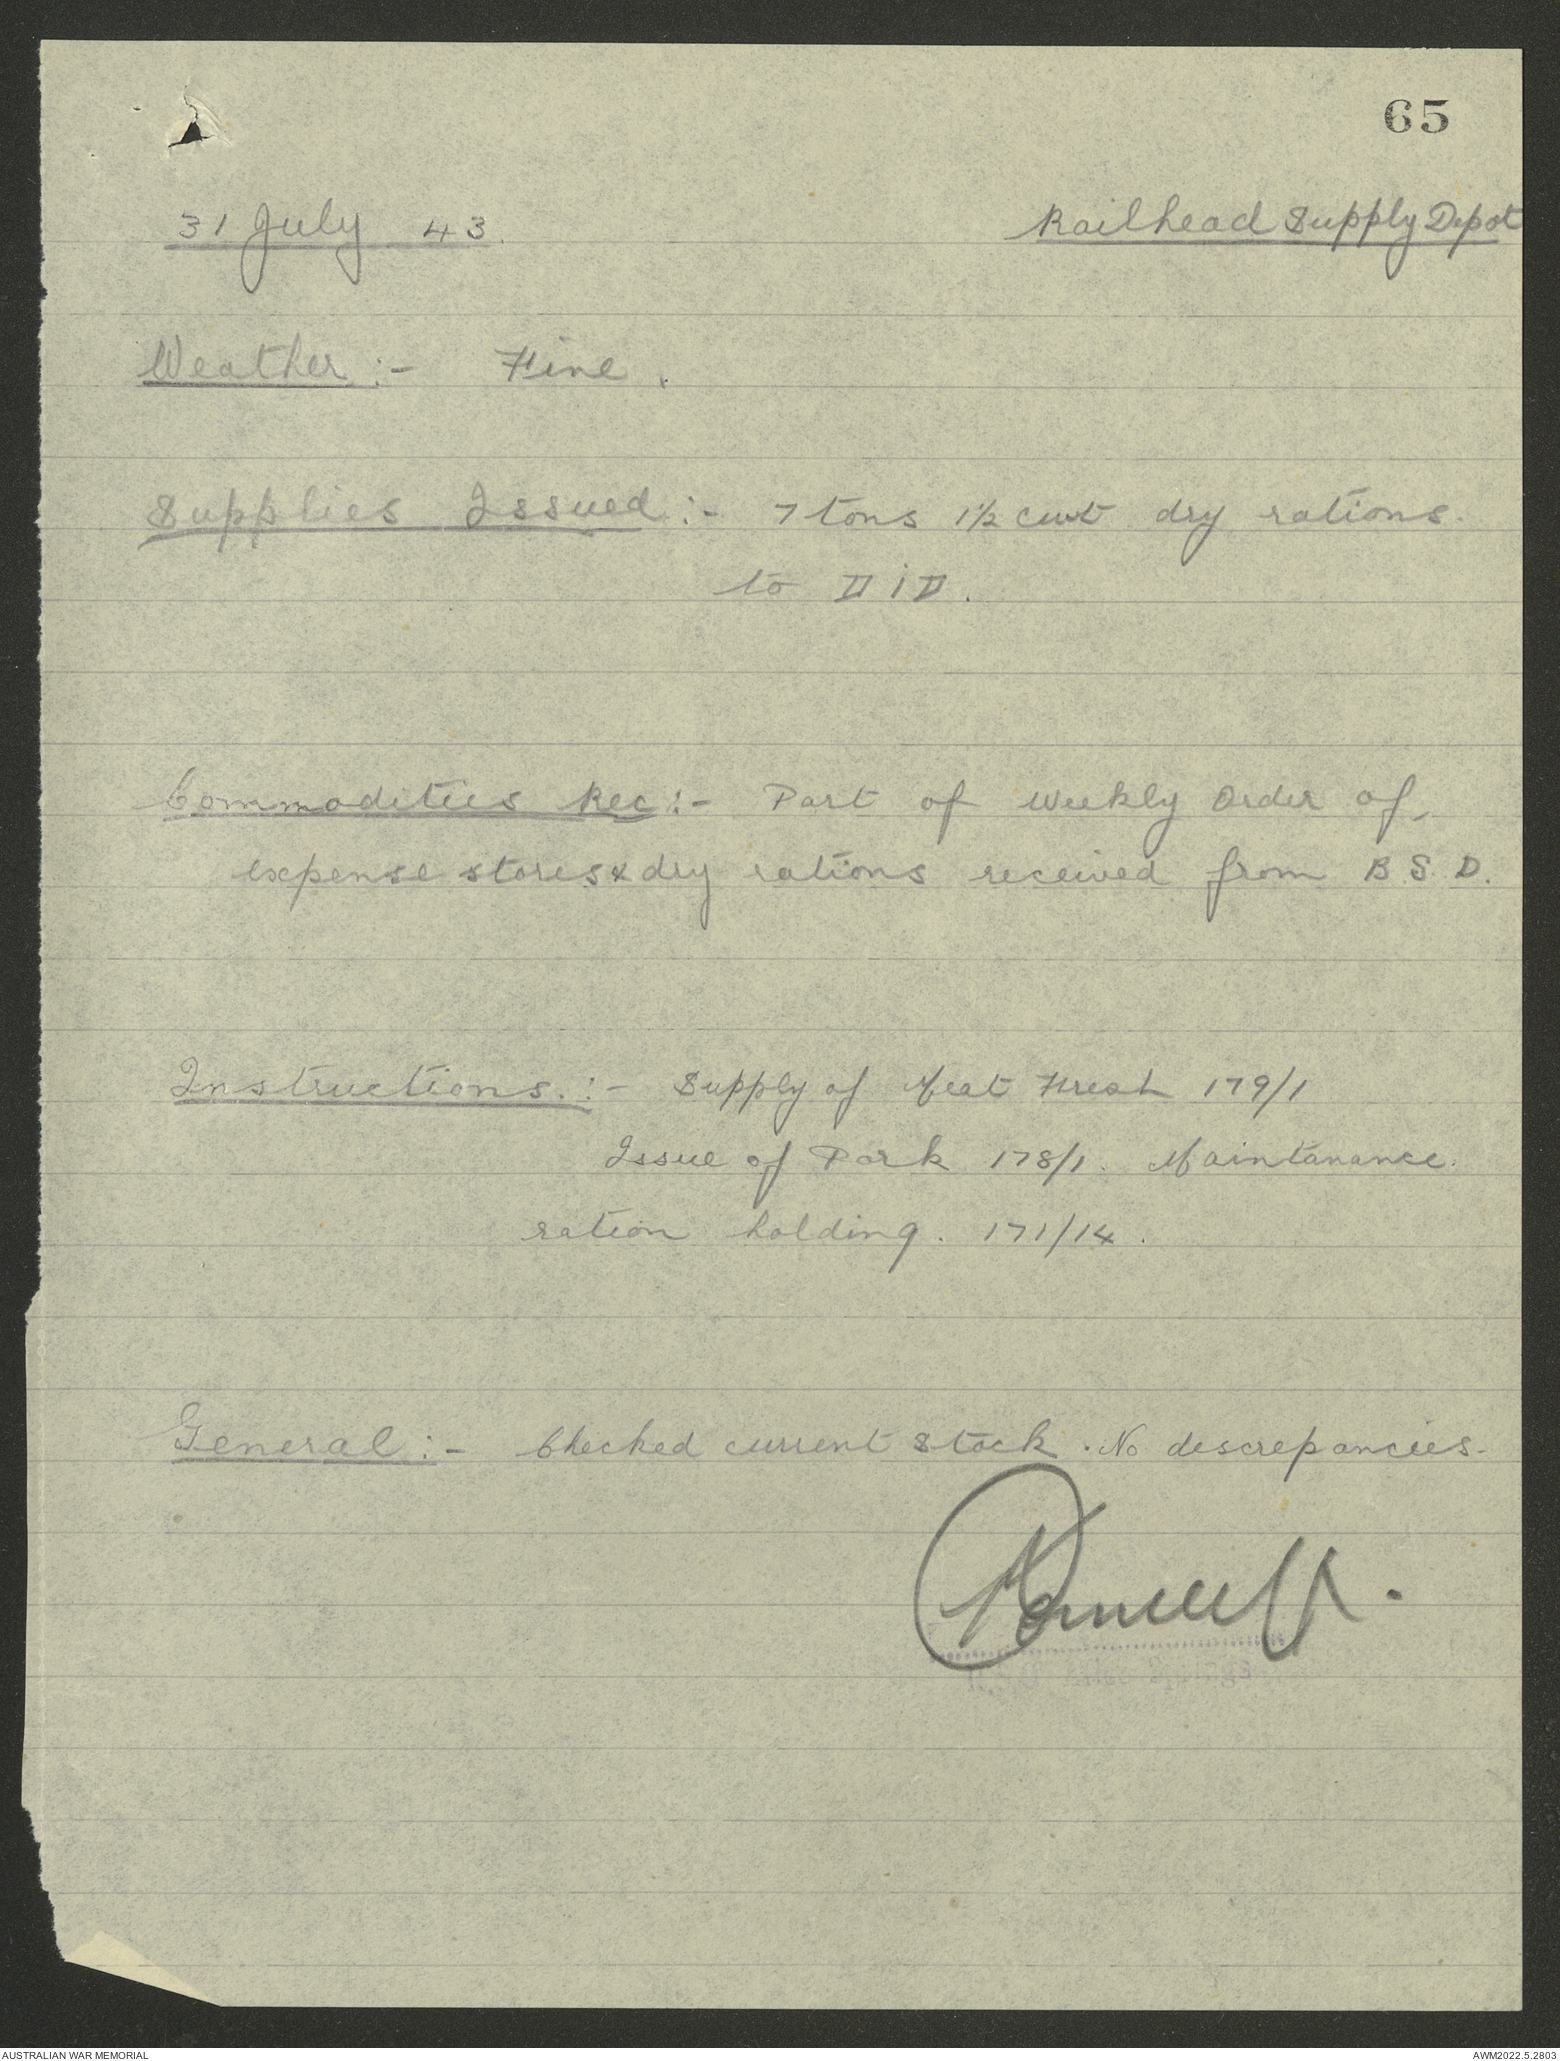 65
31 July 43. Railhead Supply Depot
Weather:- Fine.
Supplies Issued:- 7 tons 1½ cwt dry rations.
to DID.
Commodities Rec:- Part of Weekly Order of,
expense stores & dry rations received from B.S.D.
Instructions.:- Supply of Meat Fresh 179/1
Issue of Pork 178/1. Maintanance.
ration holding. 171/14.
General:- Checked current stock. No descrepancies.
AUSTRALIAN WAR MEMORIAL AWM2022.5.2803